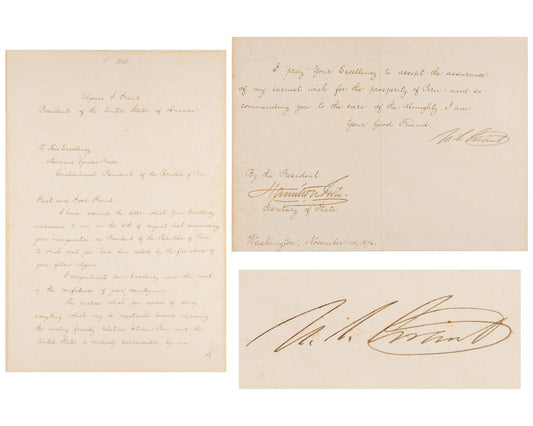 Ulysses S. Grant
President of the United States of America
To His Excellency
Mariano Ignacio Prado
Constitutional President of the Republic of Peru.
Great and Good Friend:
I have received the letter which Your Excellency
addressed to me on the 5th of August last, announcing
your inauguration as President of the Republic of Peru,
to which post you had been called by the free choice of
your fellow citizens.
I congratulate Your Excellency upon this mark
of the confidence of your countrymen.
The purpose which you express of doing
everything which may be practicable toward improving
the existing friendly relations between Peru and the
United States is cordially reciprocated by me.
I pray Your Excellency to accept the assurance
of my earnest wish for the prosperity of Peru; and so
commending you to the care of the Almighty, I am
Your Good Friend,
U. S. Grant
By the President:
Hamilton Fish
Secretary of State.
Washington, November
U. S. Grant